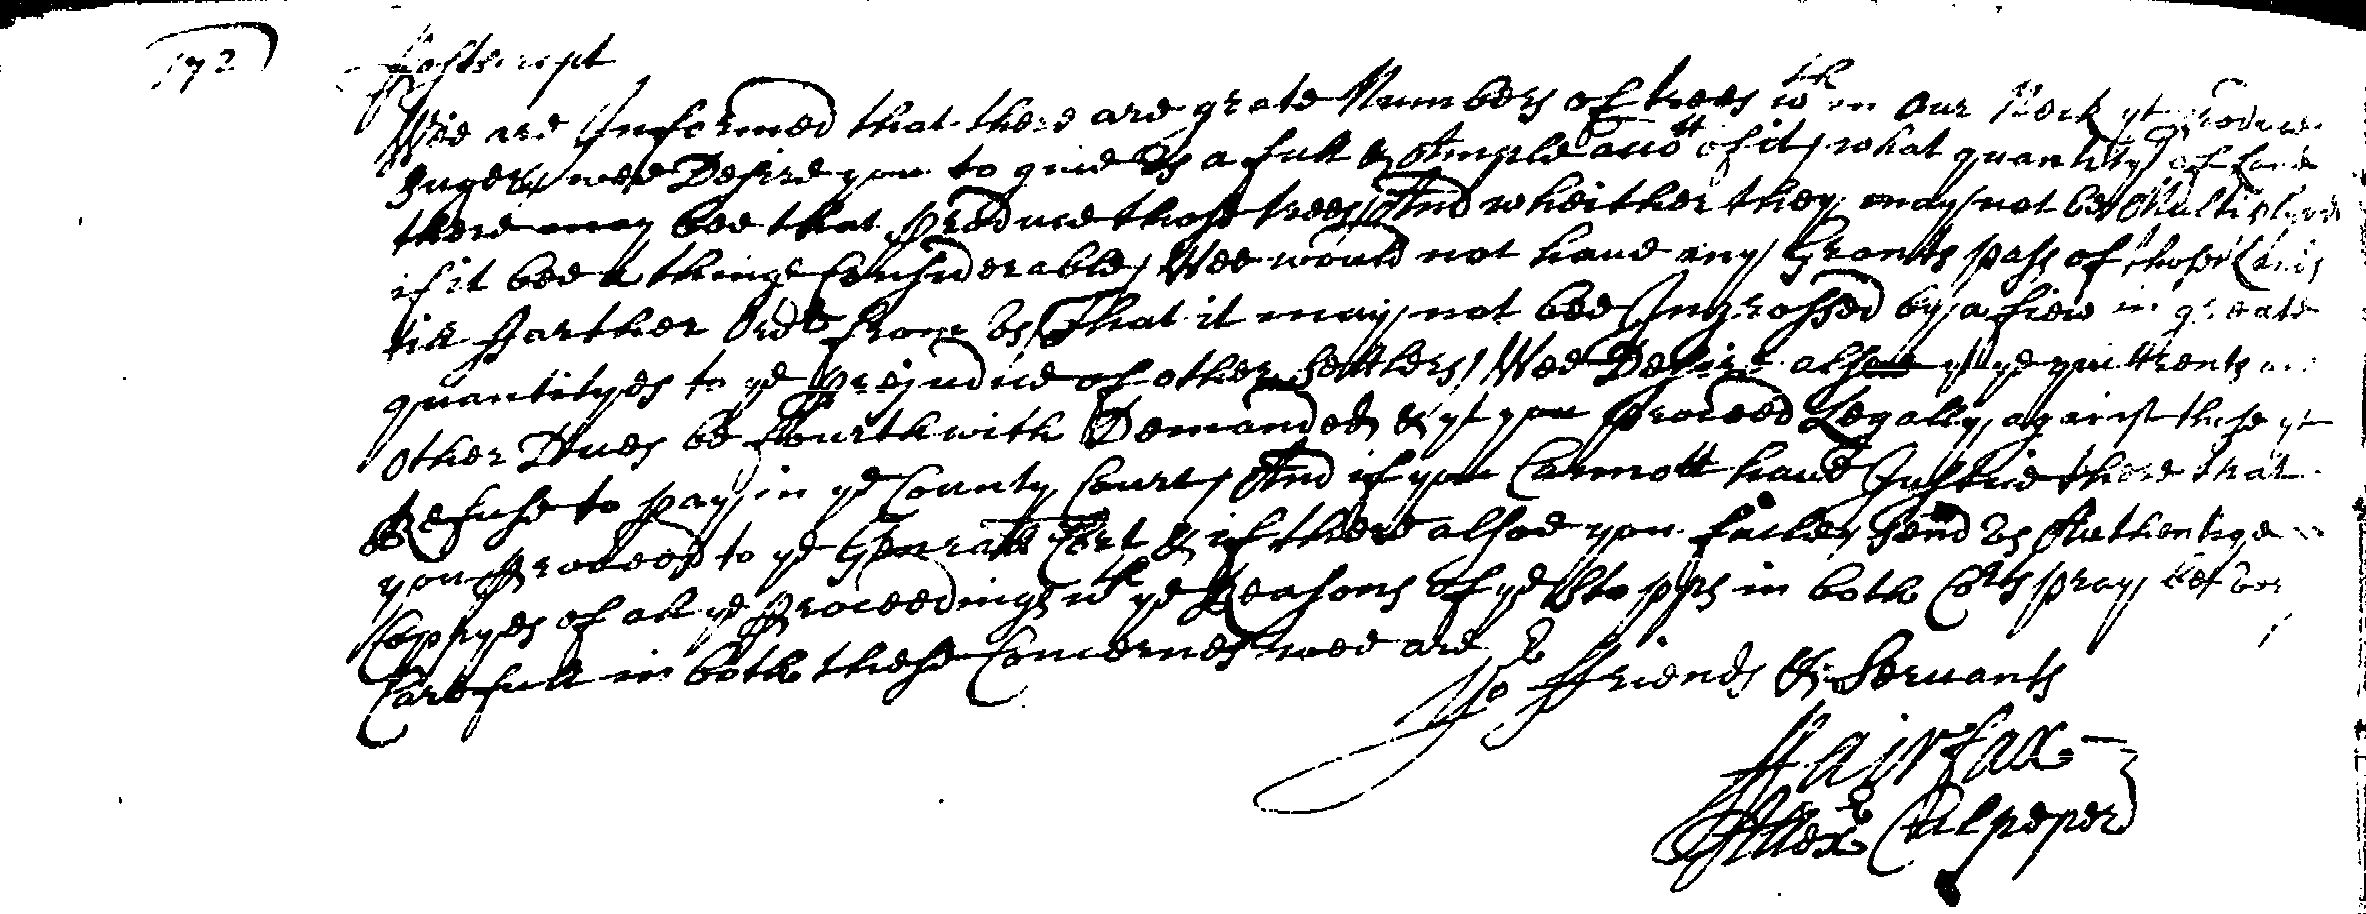 192
Postscript
Wee are Informed that there are grate Numbers of trees wth in Our Neck yt produce
suger, wee Desire you to give Us a full & Ample Acctt of it, what quantity of land
there may bee that produce those trees, And wheither they may not be Multiplyed
if it bee a thinge Considerable, Wee would not have any Grants pass of those Lands
till Farther Ordr from Us, That it may not bee Ingrossed by a fiew in greate
quantityes to ye prejudice of other Settlers, Wee Desire alsoe yt ye quittrents and
other Dues be fourthwith Demanded, & yt you proceed Legally against those yt
Refuse to pay in ye County Court, And if you Cannott have Justice there that
you Proceed to ye Genrall Cort & if there alsoe you faile, Send Us Authentique
Coppyes of all ye Proceedings wth ye Reasons of ye Stopps in both Corts pray bee
Carefull in both these Concernes wee are
Yor Friends & Servants
Fairfax
Alexr Culpeper